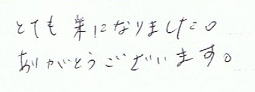 とても楽になりました。
ありがとうございます。